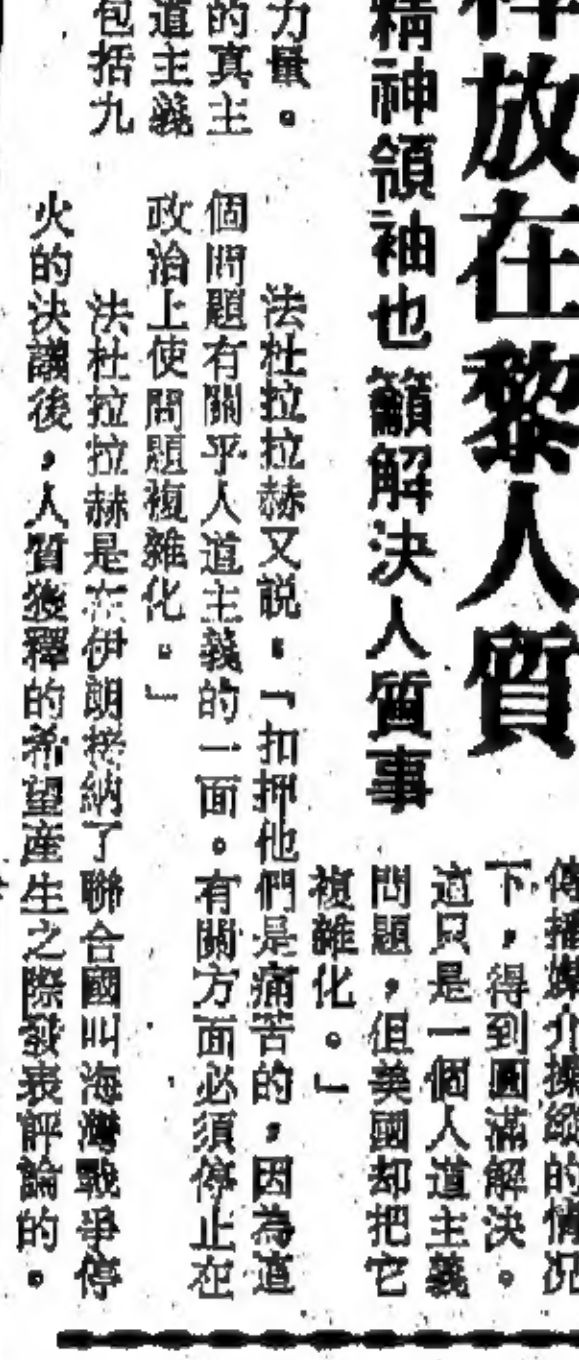 釋放在黎人質
精神領袖也籲解決人質事
傳播媒介操縱的情況
下，得到圓滿解決。
這只是一個人道主義
問題，但美國却把它
複雜化。」
力量。
的真主
道主義
包括九
法杜拉拉赫又説：「扣押他們是痛苦的，因為這
個問題有關乎人道主義的一面。有關方面必須停止在
政治上使問題複雜化。」
法杜拉拉赫是在伊朗接納了聯合國叫海灣戰爭停
火的決議後，人質獲釋的希望產生之際發表評論的。